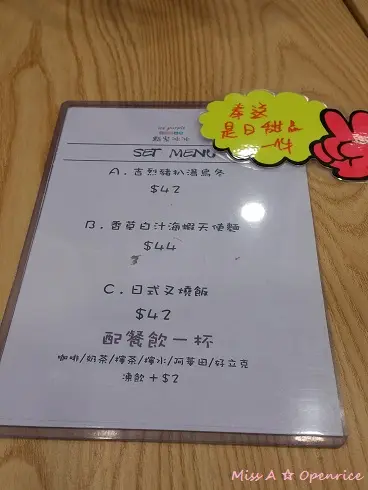 點兒冰冰
SET MENU
A. 吉烈豬扒湯烏冬
$42
B. 香草白汁海蝦天使麵
$44
C. 日式叉燒飯
$42
配餐飲一杯
咖啡/奶茶/檸茶/檸水/阿華田/好立克
凍飲+$2
奉送
是日甜品
一件
Miss A ☆ Openrice